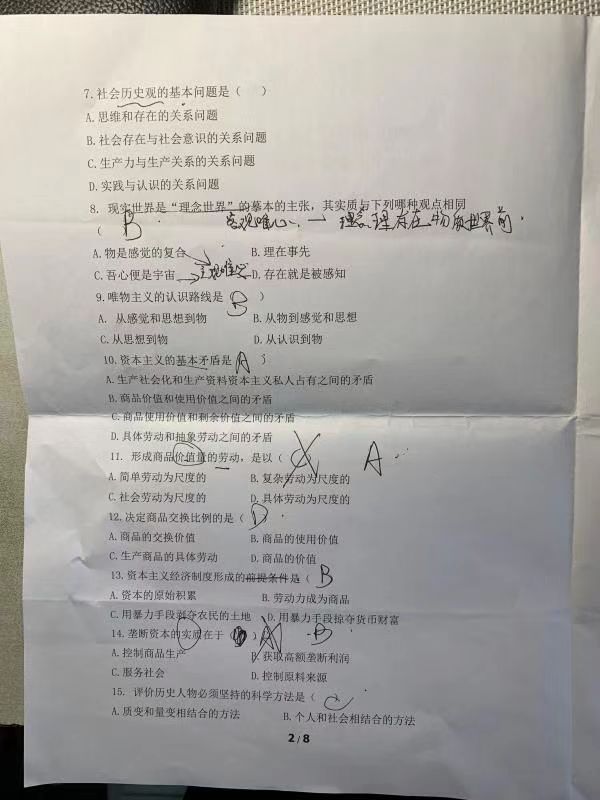 7.社会历史观的基本问题是（ ）
A.思维和存在的关系问题
B.社会存在与社会意识的关系问题
C.生产力与生产关系的关系问题
D.实践与认识的关系问题
8. 现实世界是“理念世界”的摹本的主张，其实质与下列哪种观点相同
（ B 客观唯心 → 理念、理存在物质世界前.
A.物是感觉的复合 B.理在事先
C.吾心便是宇宙 → 主观唯心 D.存在就是被感知
9.唯物主义的认识路线是（ B ）
A. 从感觉和思想到物 B.从物到感觉和思想
C.从思想到物 D.从认识到物
10.资本主义的基本矛盾是 A
A.生产社会化和生产资料资本主义私人占有之间的矛盾
B.商品价值和使用价值之间的矛盾
C.商品使用价值和剩余价值之间的矛盾
D.具体劳动和抽象劳动之间的矛盾
11. 形成商品价值量的劳动，是以（ ） A
A.简单劳动为尺度的 B.复杂劳动为尺度的
C.社会劳动为尺度的 D.具体劳动为尺度的
12.决定商品交换比例的是（ D ）
A.商品的交换价值 B.商品的使用价值
C.生产商品的具体劳动 D.商品的价值
13.资本主义经济制度形成的前提条件是（ B
A.资本的原始积累 B.劳动力成为商品
C.用暴力手段剥夺农民的土地 D.用暴力手段掠夺货币财富
14.垄断资本的实质在于（ ） B
A.控制商品生产 B.获取高额垄断利润
C.服务社会 D.控制原料来源
15. 评价历史人物必须坚持的科学方法是（ C
A.质变和量变相结合的方法 B.个人和社会相结合的方法
2 / 8